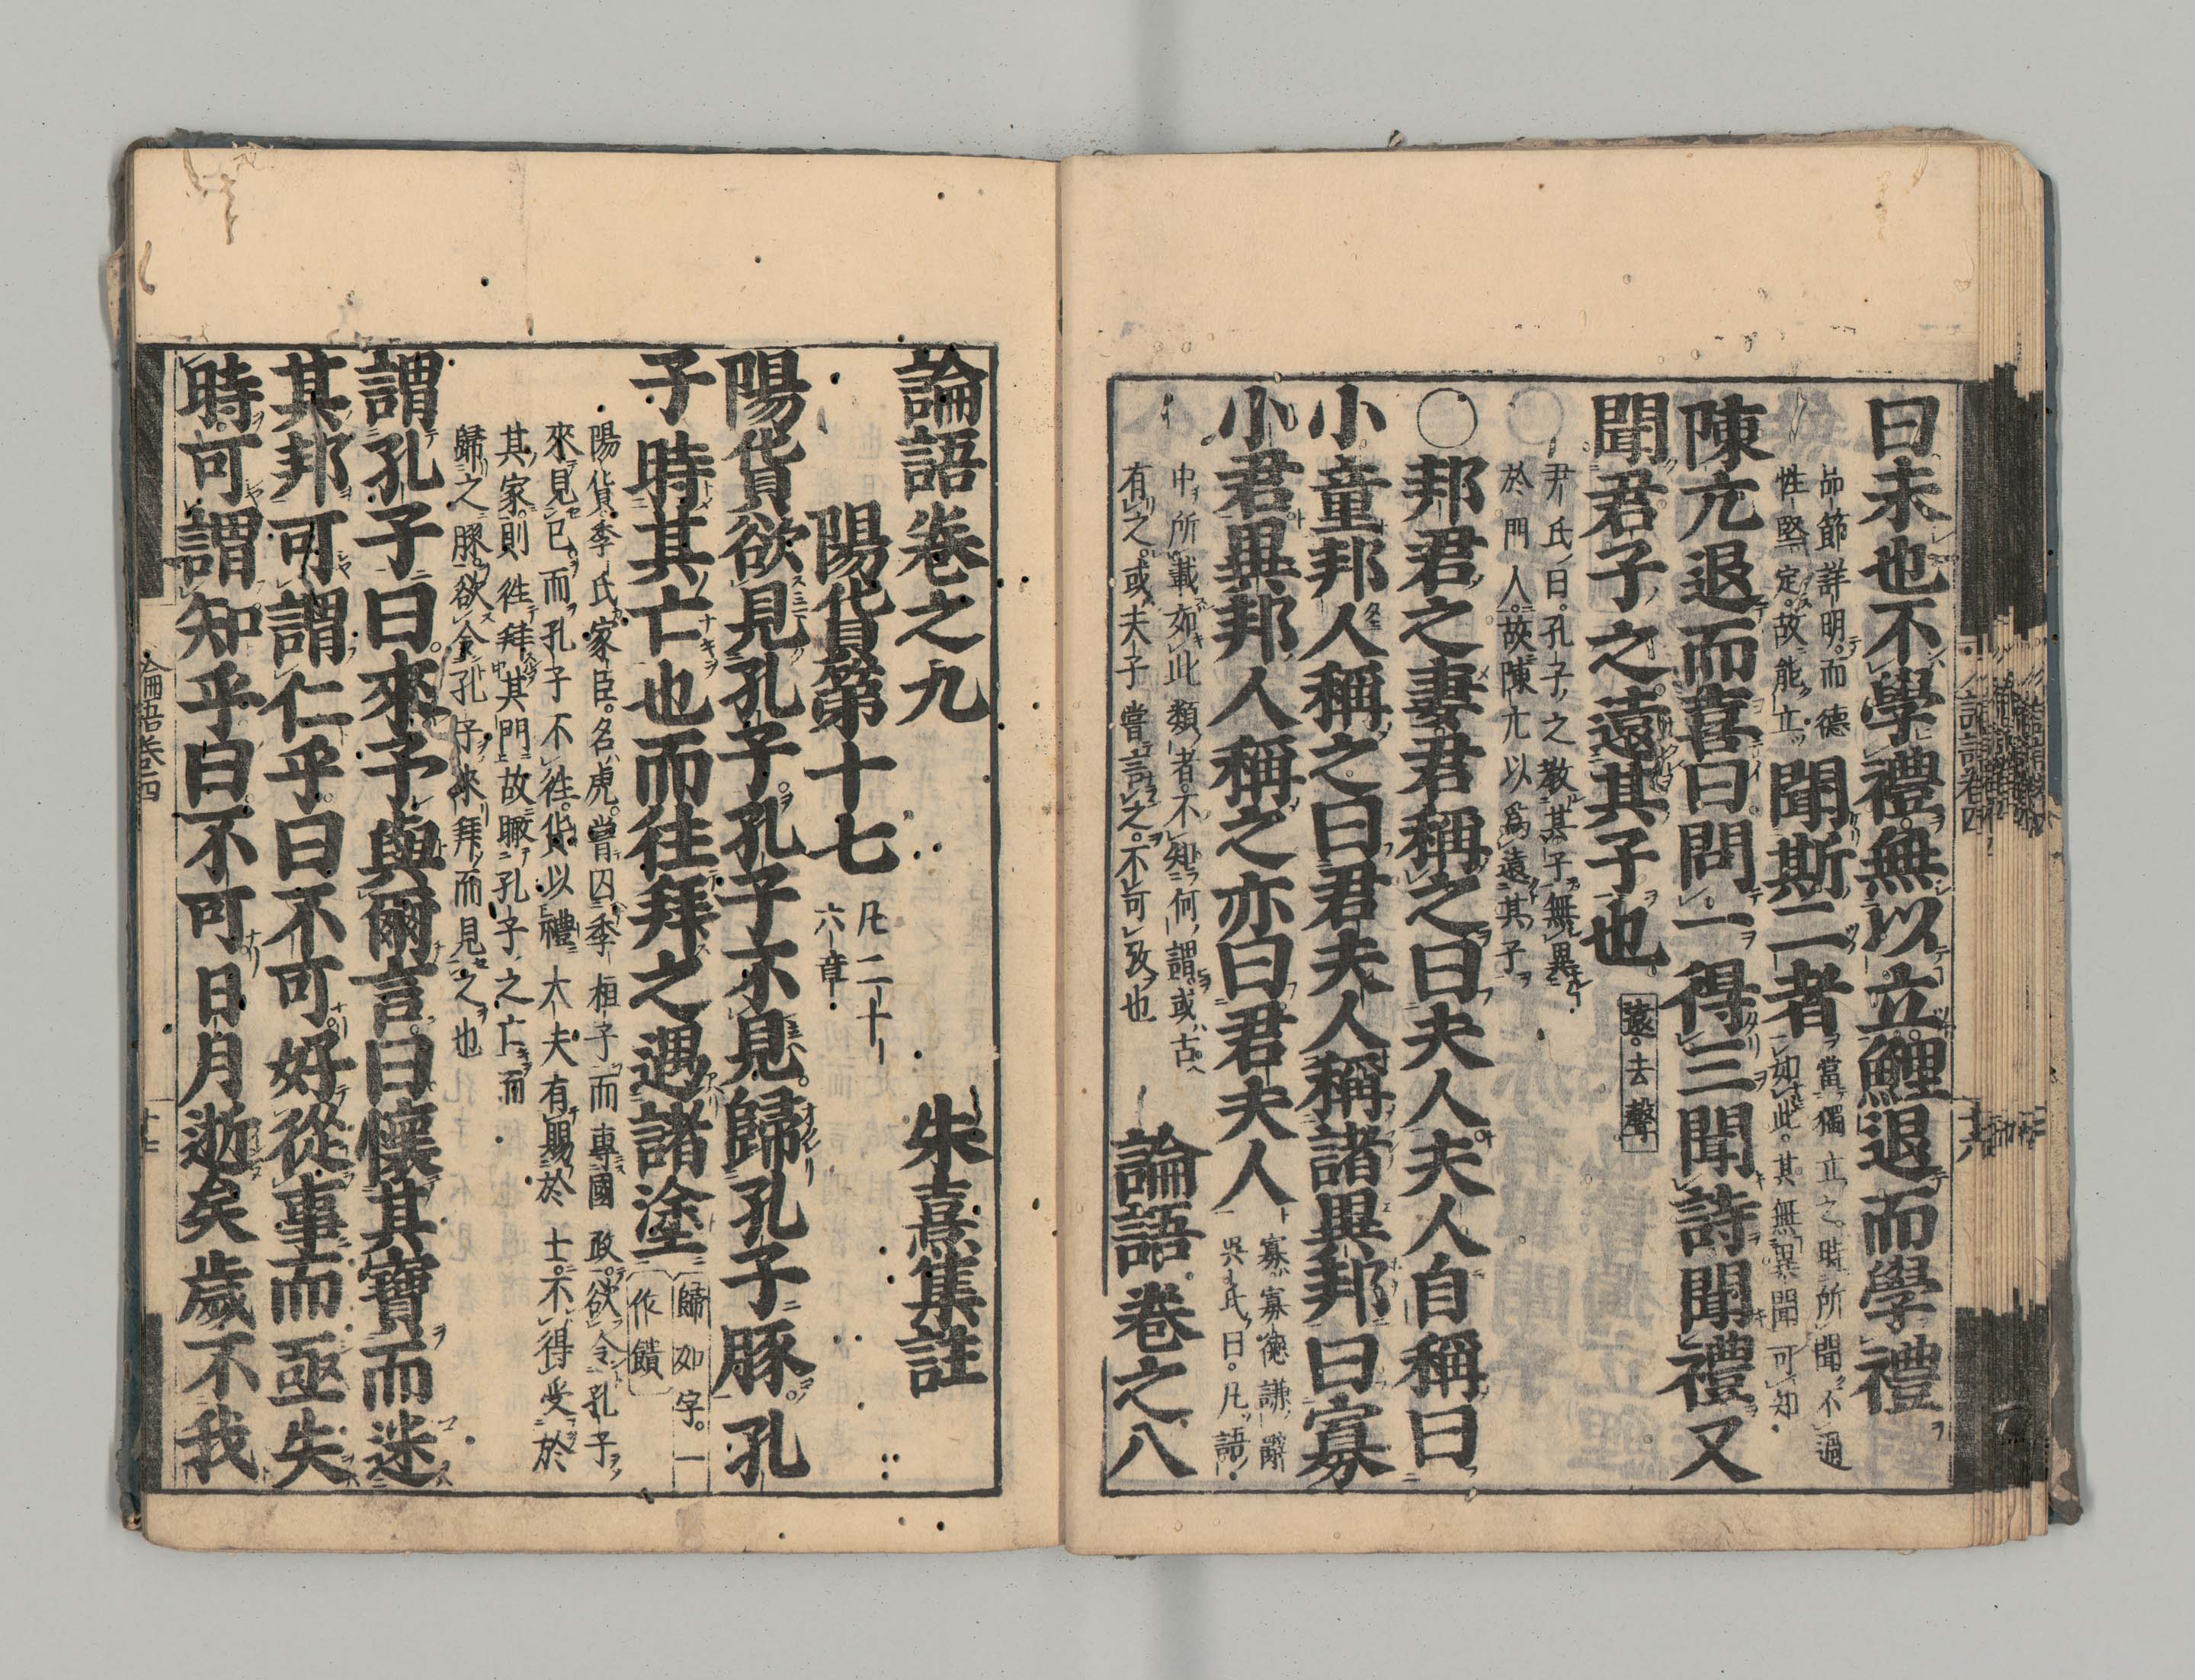 曰未也不學禮無以立鯉退而學禮
品節詳明而德
性堅定故能立
聞斯二者
當獨立之時所聞不過
如此其無異聞可知
陳亢退而喜曰問一得三聞詩聞禮又
聞君子之遠其子也
遠去聲
尹氏曰孔子之教其子無異
於門人故陳亢以爲遠其子
○邦君之妻君稱之曰夫人夫人自稱曰
小童邦人稱之曰君夫人稱諸異邦曰寡
小君異邦人稱之亦曰君夫人
寡寡德謙辭
吳氏曰凡語
中所載如此類者不知何謂或古
有之或夫子嘗言之不可攷也
論語卷之八
論語卷之九
朱熹集註
陽貨第十七
凡二十
六章
陽貨欲見孔子孔子不見歸孔子豚孔
子時其亡也而往拜之遇諸塗
歸如字一
作饋
陽貨季氏家臣名虎嘗囚季桓子而專國政欲令孔子
來見己而孔子不往貨以禮大夫有賜於士不得受於
其家則往拜其門故瞰孔子之亡而
歸之豚欲令孔子來拜而見之也
謂孔子曰來予與爾言曰懷其寶而迷
其邦可謂仁乎曰不可好從事而亟失
時可謂知乎曰不可日月逝矣歲不我
論語卷四
十七